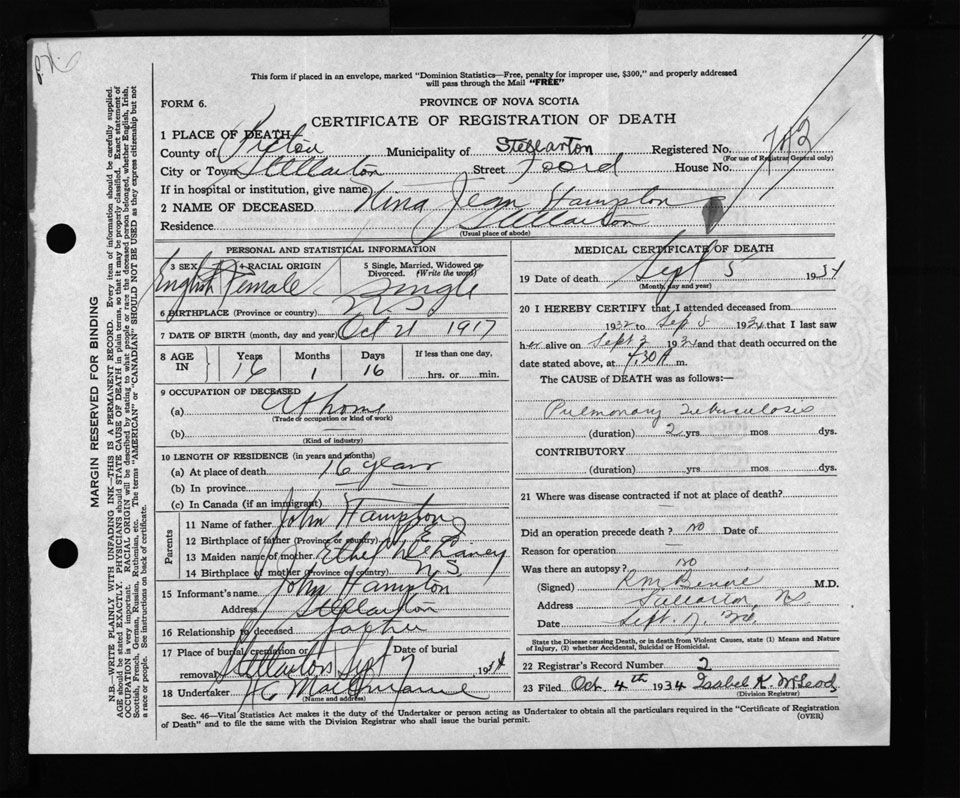 This form if placed in an envelope, marked "Dominion Statistics—Free, penalty for improper use, $300," and properly addressed
will pass through the Mail "FREE"
FORM 6.
PROVINCE OF NOVA SCOTIA
CERTIFICATE OF REGISTRATION OF DEATH
1 PLACE OF DEATH
County of Pictou Municipality of Stellarton Registered No. 782
(For use of Registrar General only)
City or Town Stellarton Street Foord House No.
If in hospital or institution, give name)
2 NAME OF DECEASED Nina Jean Hampton
Residence Stellarton
(Usual place of abode)
PERSONAL AND STATISTICAL INFORMATION
3 SEX 4 RACIAL ORIGIN 5 Single, Married, Widowed or Divorced. (Write the word)
English Female Single
6 BIRTHPLACE (Province or country) N.S.
7 DATE OF BIRTH (month, day and year) Oct 21 1917
8 AGE IN Years Months Days If less than one day,
16 1 16 hrs. or min.
9 OCCUPATION OF DECEASED
(a) At home
(Trade or occupation or kind of work)
(b)
(Kind of industry)
10 LENGTH OF RESIDENCE (in years and months)
(a) At place of death 16 years
(b) In province
(c) In Canada (if an immigrant)
Parents
11 Name of father John Hampton
12 Birthplace of father (Province or country)
13 Maiden name of mother Ethel
14 Birthplace of mother (Province or country) N.S.
15 Informant's name John Hampton
Address Stellarton
16 Relationship to deceased father
17 Place of burial, cremation or removal Date of burial
Stellarton Sept 7 1934
18 Undertaker
(Name and address)
MEDICAL CERTIFICATE OF DEATH
19 Date of death Sept 5 1934
(Month, day and year)
20 I HEREBY CERTIFY that I attended deceased from
1932 to Sep 5 1934 that I last saw
her alive on Sept 2 1934 and that death occurred on the
date stated above, at 7.30 A m.
The CAUSE of DEATH was as follows:—
Pulmonary Tuberculosis
(duration) 2 yrs mos dys.
CONTRIBUTORY
(duration) yrs. mos. dys.
21 Where was disease contracted if not at place of death?
Did an operation precede death? no Date of
Reason for operation
Was there an autopsy? no
(Signed) M.D.
Address Stellarton, N.S.
Date Sept. 7, 34
State the Disease causing Death, or in death from Violent Causes, state (1) Means and Nature
of Injury, (2) whether Accidental, Suicidal or Homicidal.
22 Registrar's Record Number 2
23 Filed Oct. 4th 1934 Isabel K. McLeod
(Division Registrar)
Sec. 46—Vital Statistics Act makes it duty of the Undertaker or person acting as Undertaker to obtain all the particulars required in the "Certificate of Registration
of Death" and to file the same with the Division Registrar who shall issue the burial permit.
(OVER)
MARGIN RESERVED FOR BINDING
N.B.—WRITE PLAINLY WITH UNFADING INK—THIS IS A PERMANENT RECORD. Every item of information should be carefully supplied.
AGE should be stated EXACTLY. PHYSICIANS should STATE CAUSE OF DEATH in plain terms, so that it may be properly classified. Exact statement of
OCCUPATION is very important. RACIAL ORIGIN will be described by stating to what people or race the deceased person belonged, whether English, Irish,
Scottish, French, German, Russian, Ruthenian, etc. The terms "AMERICAN" or "CANADIAN" SHOULD NOT BE USED as they express citizenship but not
a race or people. See instructions on back of certificate.